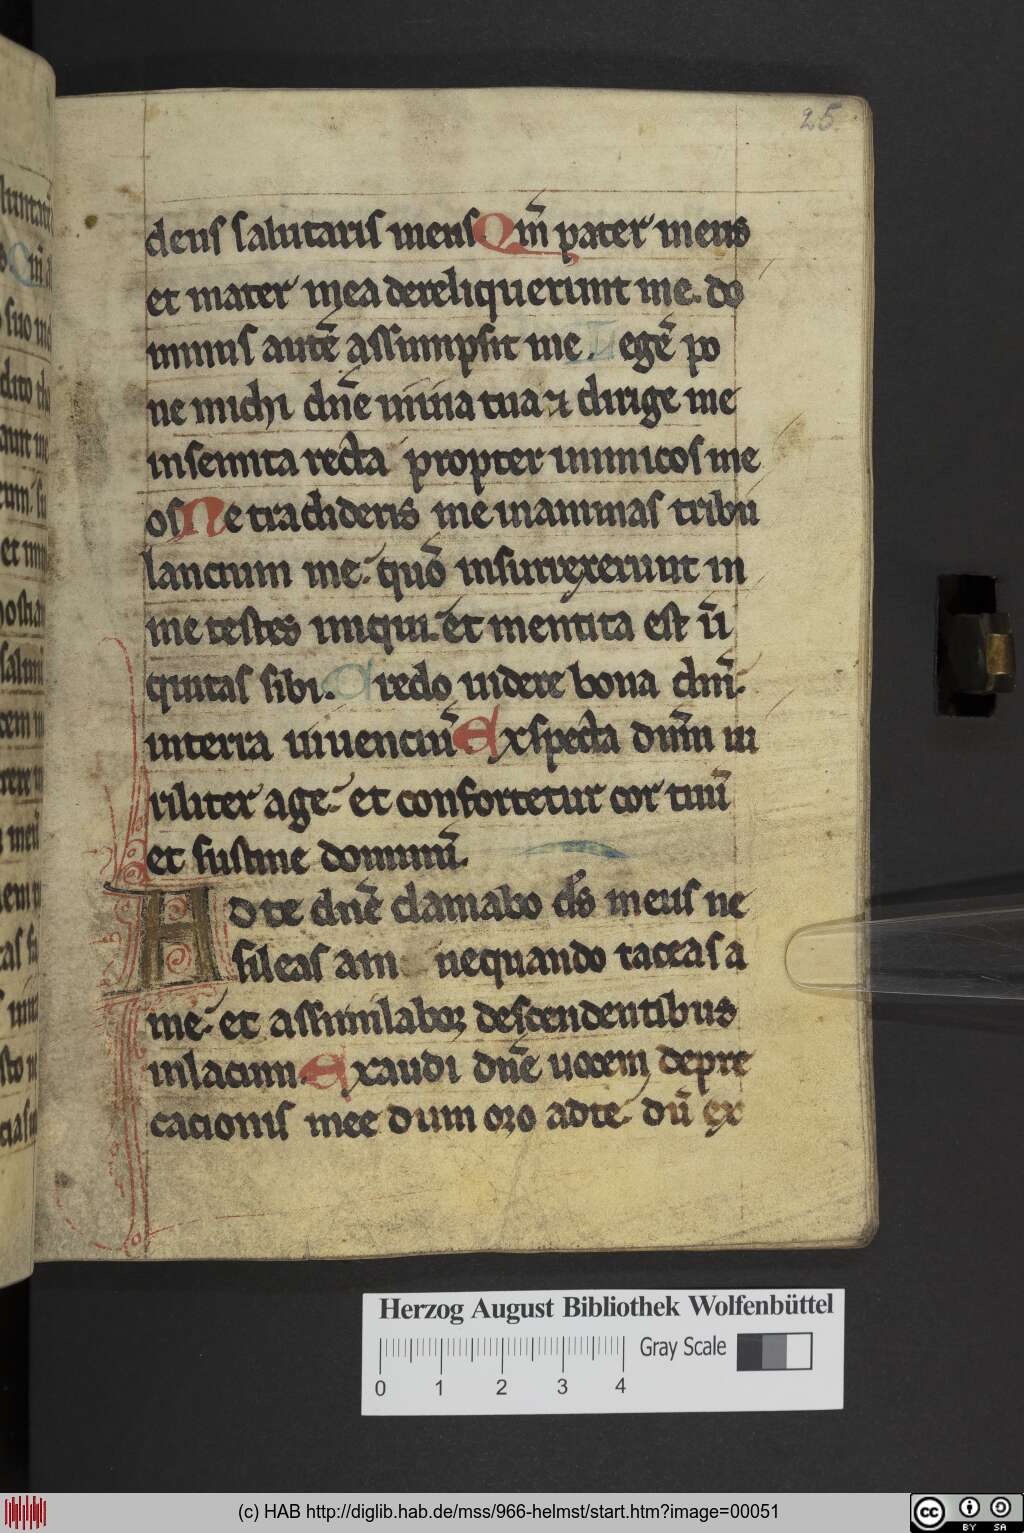 25
deus salutaris meus Qm̄ pater meus
et mater mea dereliquerunt me. do
minus autē assumpsit me. Legē po
ne michi dn̄e in uia tua ⁊ dirige me
in semita recta propter inimicos me
os Ne tradideris me in animas tribu
lancium me. quō insurrexerunt in
me testes iniqui. et mentita est in̄
quitas sibi. Credo uidere bona dn̄i.
in terra uiuenciū Exspecta dnm̄ ui
riliter age. et confortetur cor tuū
et sustine dominū.
Ad te dn̄e clamabo ds̄ meus ne
sileas a me nequando taceas a
me. et assimilabor descendentibus
in lacum. Exaudi dn̄e uocem depre
cacionis mee dum oro ad te. dū ex
Herzog August Bibliothek Wolfenbüttel
Gray Scale
0 1 2 3 4
(c) HAB http://diglib.hab.de/mss/966-helmst/start.htm?image=00051
cc BY SA